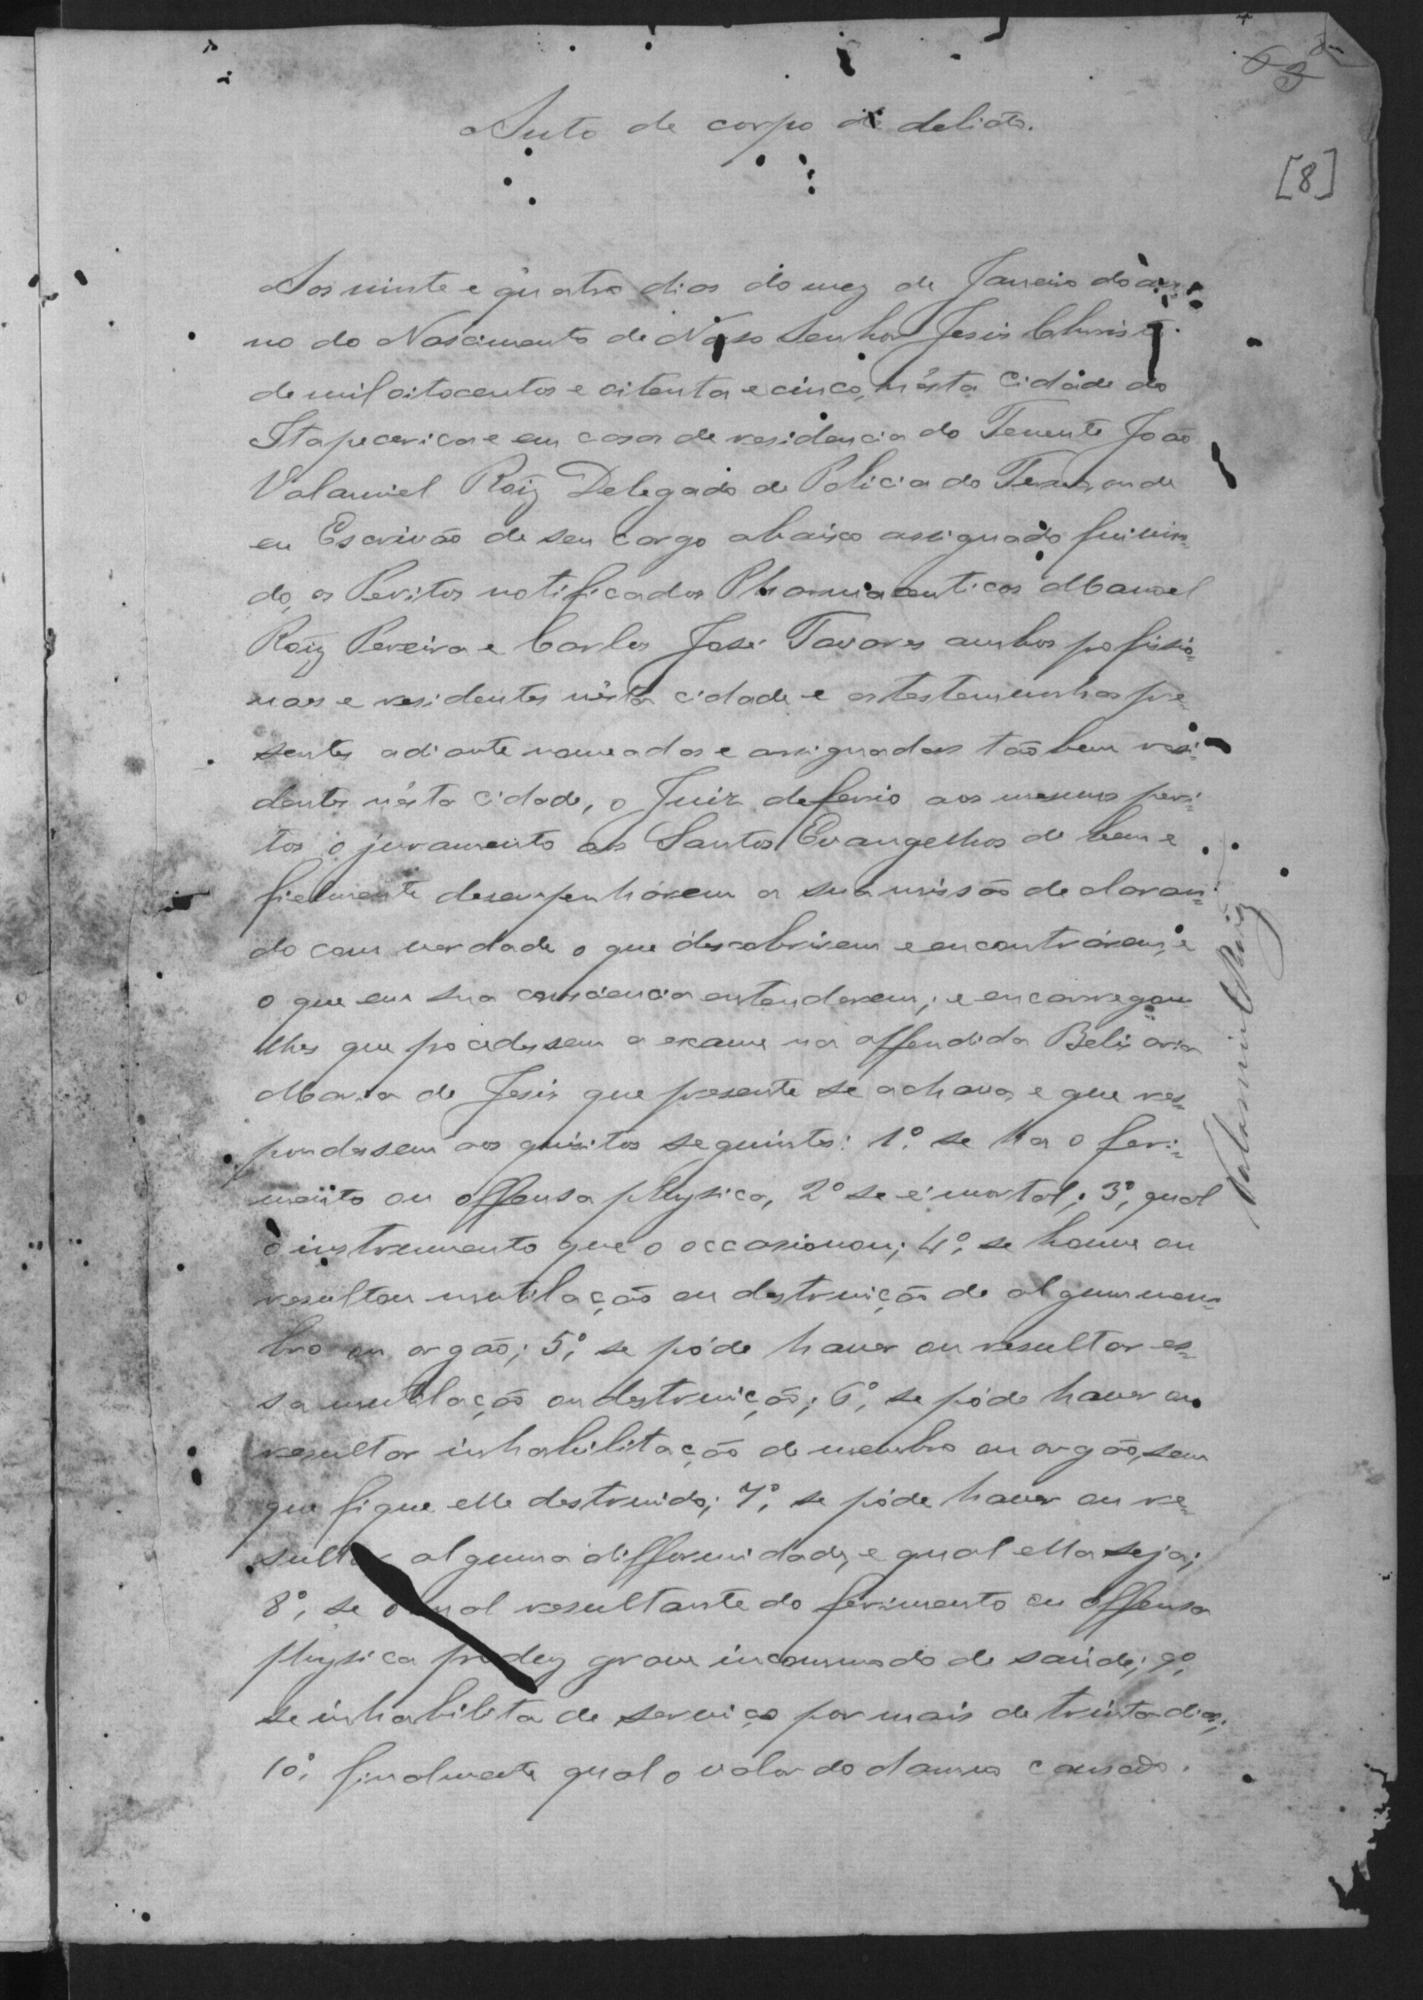 [8]
Auto de corpo de delicto.
Aos vinte e quatro dias do mez de Janeiro do an-
no do Nascimento de Nosso Senhor Jesus Christo
de mil oitocentos e oitenta e cinco, nésta cidade do
Itapecerica e em casa de residencia do Tenente João
Valamiel Roiz Delegado de Policia do Termo onde
eu Escrivão de seu cargo abaixo assignado fui vin-
do, os Peritos notificados Pharmaceuticos Manoel
Roiz Pereira e Carlos José Tavares ambos pofissio-
naes e residentes nésta cidade e as testemunhas pre-
sentes adiante nomeadas e assignadas tão bem resi-
dentes nésta cidade, o Juiz deferio aos mesmos peri-
tos o juramento aos Santos Evangelhos de bem e
fielmente desempenhárem a sua missão declaran-
do com verdade o que descobrirem e encontrárem, e
o que em sua consciencia entenderem; e encarregou
lhes que procedessem a exame na offendida Belizaria
Maria de Jesus que presente se achava, e que res-
pondessem aos quisitos seguintes: 1º. se ha o feri-
mento ou offensa physica, 2º se é mortal; 3º, qual
o instrumento que o occasionou; 4º, se houve ou
resultou mutilação ou destruição de algum mem-
bro ou orgão; 5º, se póde haver ou resultar es-
sa mutilação ou destruição; 6º, se póde haver ou
resultar inhabilitação de membro ou orgão, sem
que fique elle destruido; 7º, se póde haver ou re-
sultar alguma difformidade, e qual ella seja;
8º, se o mal resultante do ferimento ou offensa
physica produz grave incommodo de saúde; 9º,
se inhabilita de serviço por mais de trinta dias;
10º, finalmente qual o valor do damno causado.
Valamiel Roiz